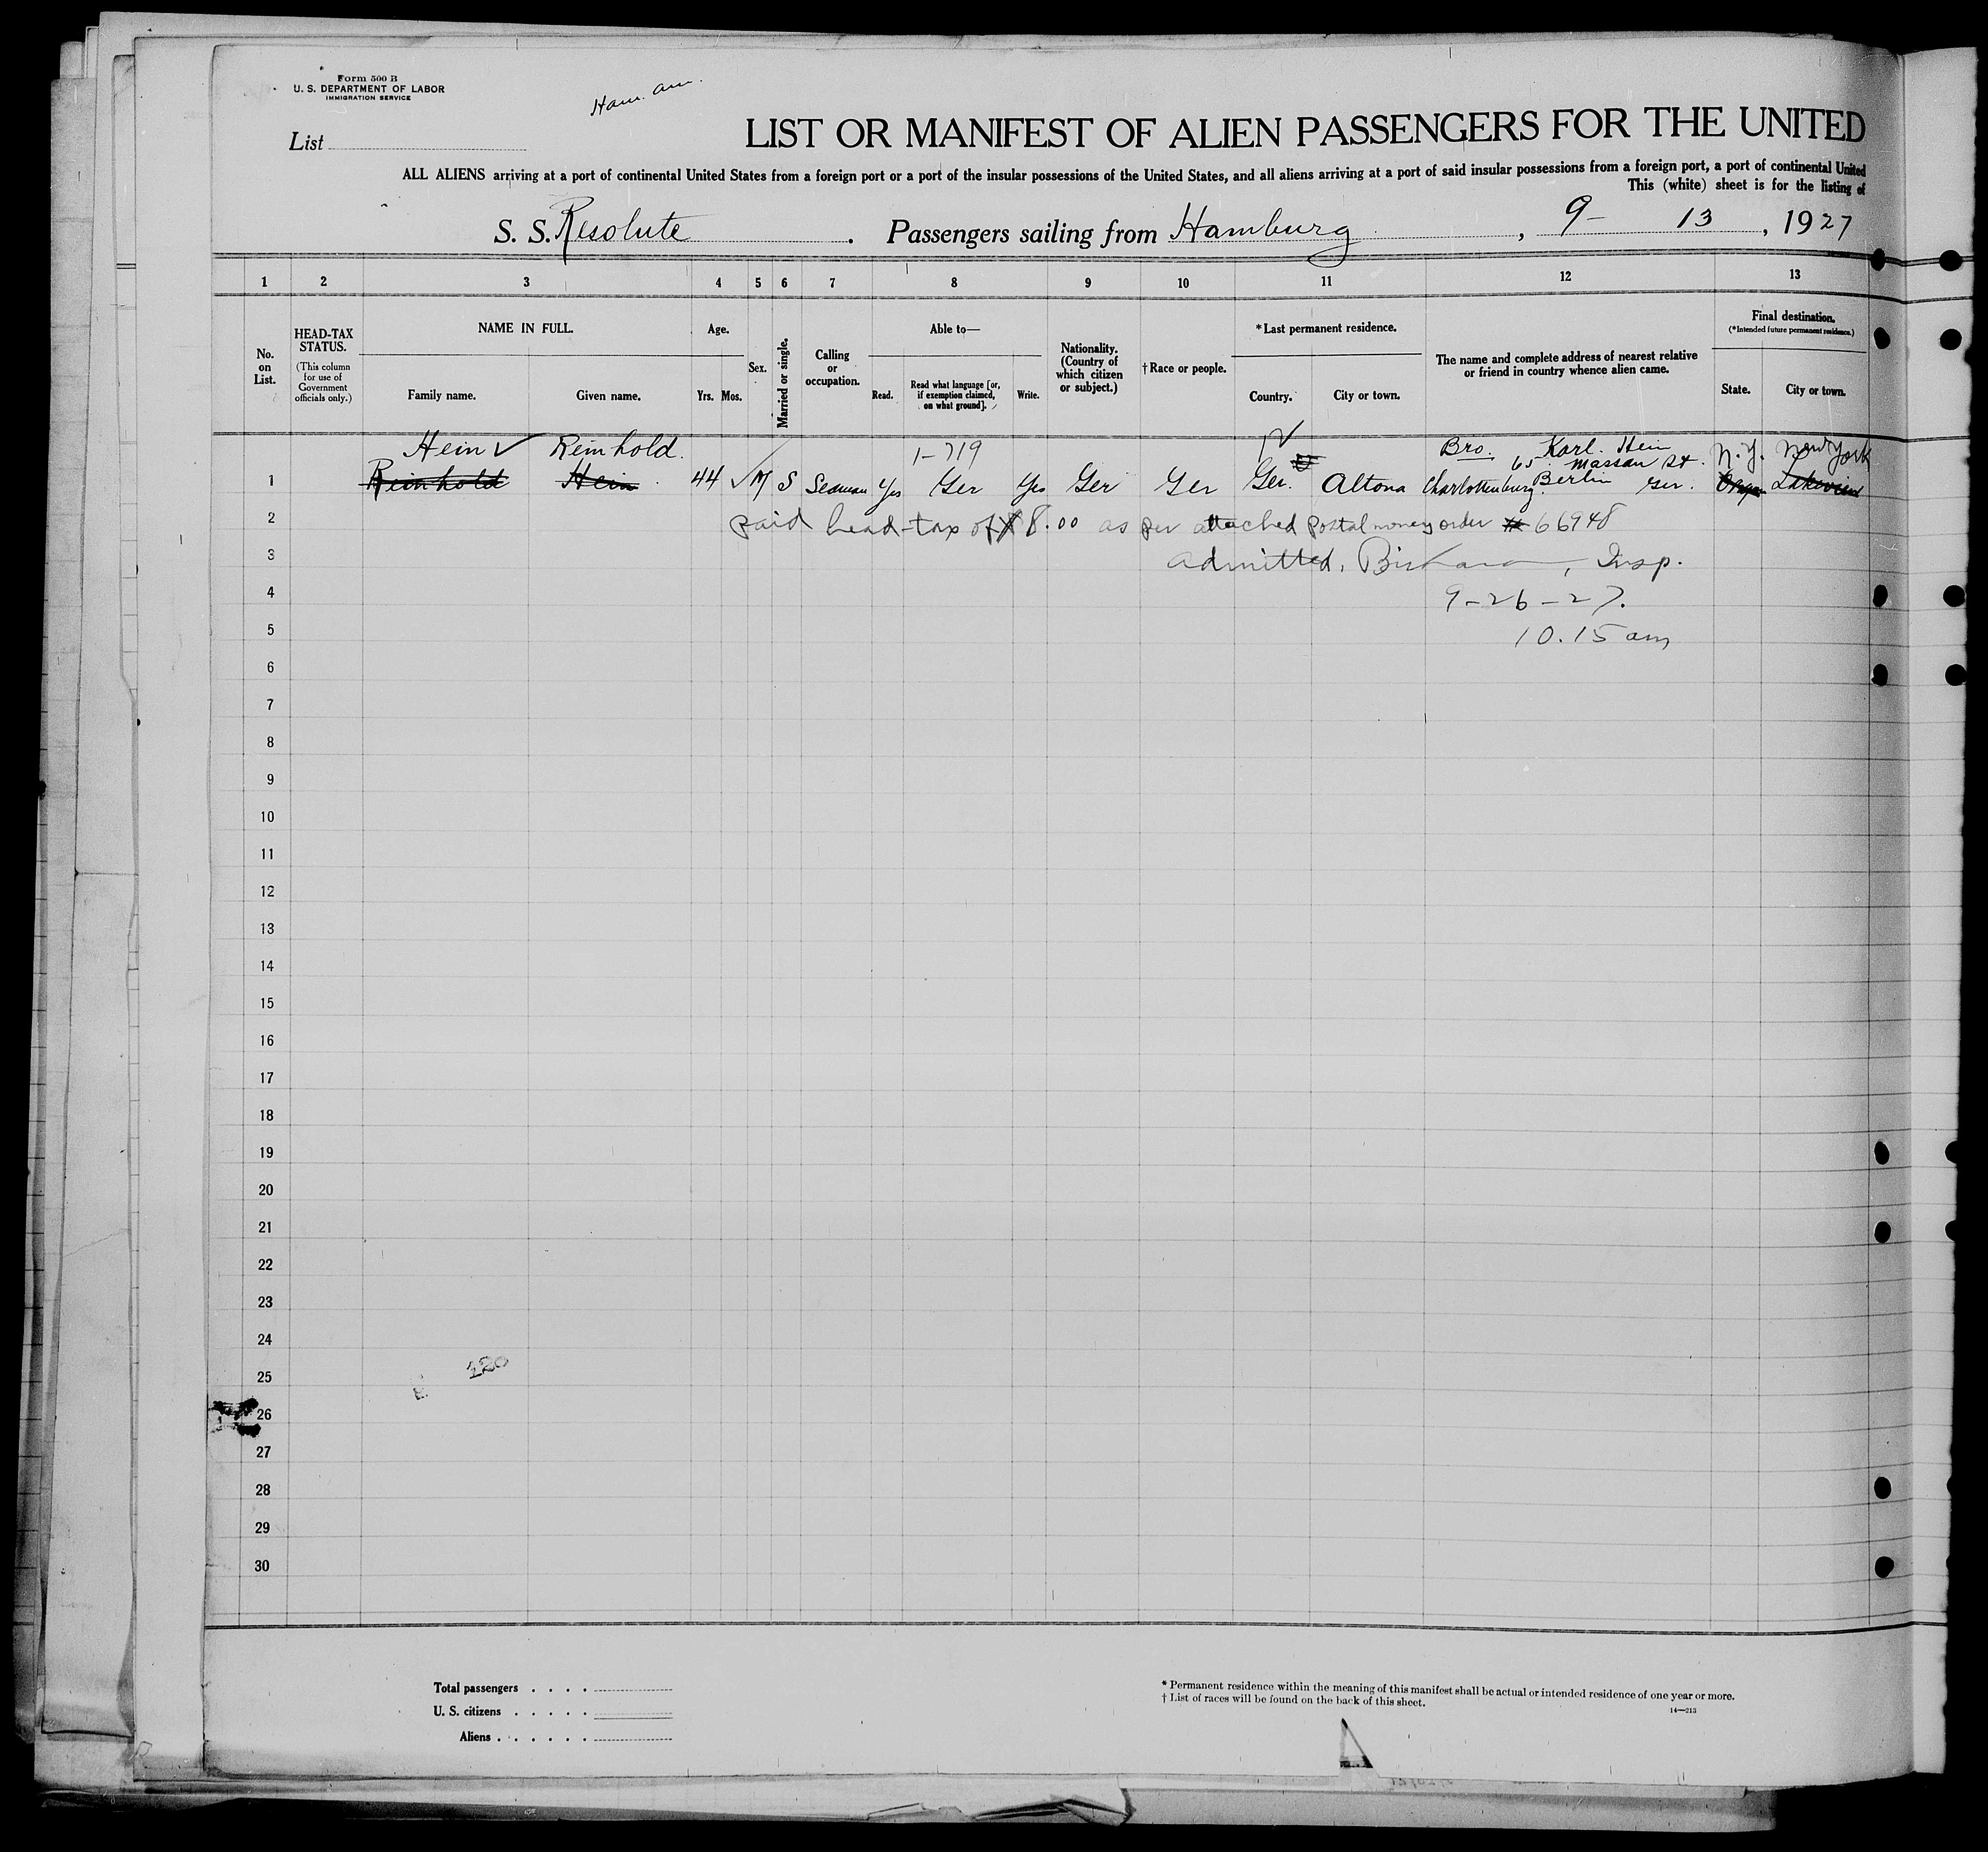 Form 500 B
U. S. DEPARTMENT OF LABOR
IMMIGRATION SERVICE
Ham. Am.
List
LIST OR MANIFEST OF ALIEN PASSENGERS FOR THE UNITED
ALL ALIENS arriving at a port of continental United States from a foreign port or a port of the insular possessions of the United States, and all aliens arriving at a port of said insular possessions from a foreign port, a port of continental United
This (white) sheet is for the listing of
S. S. Resolute . Passengers sailing from Hamburg , 9- 13 , 1927
1 2 3 4 5 6 7 8 9 10 11 12 13
No. on List.
HEAD-TAX STATUS.
(This column for use of Government officials only.)
NAME IN FULL.
Family name. Given name.
Age.
Yrs. Mos.
Sex.
Married or single.
Calling or occupation.
Able to—
Read. Read what language [or, if exemption claimed, on what ground]. Write.
Nationality. (Country of which citizen or subject.)
† Race or people.
*Last permanent residence.
Country. City or town.
The name and complete address of nearest relative or friend in country whence alien came.
Final destination.
(*Intended future permanent residence.)
State. City or town.
Hein ✓ Reinhold. 1-719 Bro. Karl. Hein N.Y. New York
65 Massau St.
1 Reinhold Hein 44 ✓ M S Seaman Yes Ger Yes Ger Ger Ger. Altona Charlottenburg Berlin Ger. Lakeview
2 paid head-tax of $8.00 as per attached postal money order # 66948
3 Admitted, Insp.
4 9-26-27.
5 10.15 am
6
7
8
9
10
11
12
13
14
15
16
17
18
19
20
21
22
23
24
25
26
27
28
29
30
120
Total passengers . . . .
U. S. citizens . . . . .
Aliens . . . . . .
* Permanent residence within the meaning of this manifest shall be actual or intended residence of one year or more.
† List of races will be found on the back of this sheet.
14—213